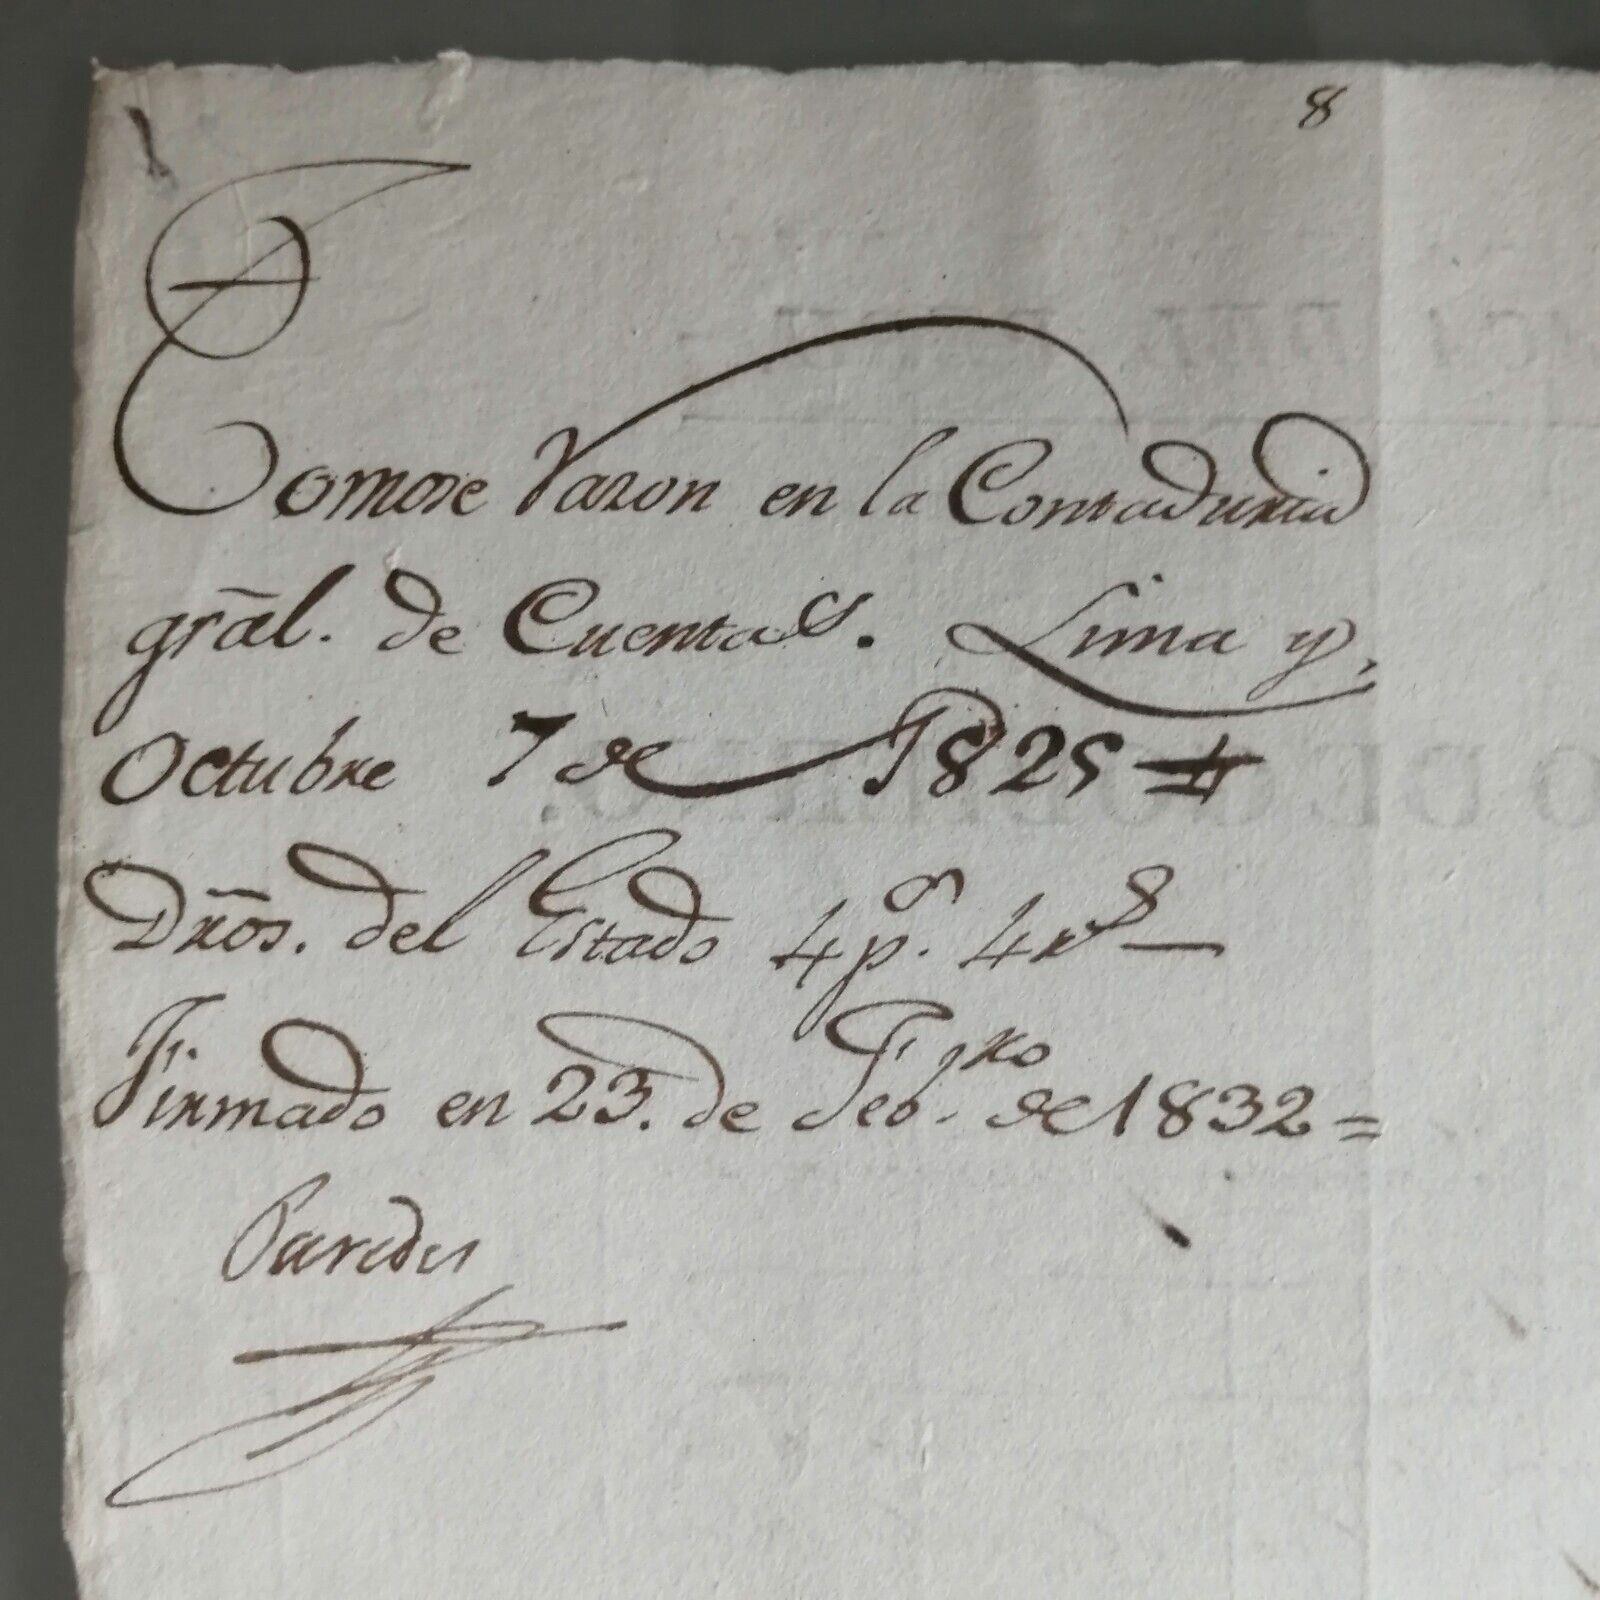 8
Tomose razon en la Contaduria
grãl. de Cuentas. Lima y
Octubre 7 de 1825
Dr̃os. del Estado 4 ps. 4 rs
Firmado en 23. de Febro. de 1832=
Paredes